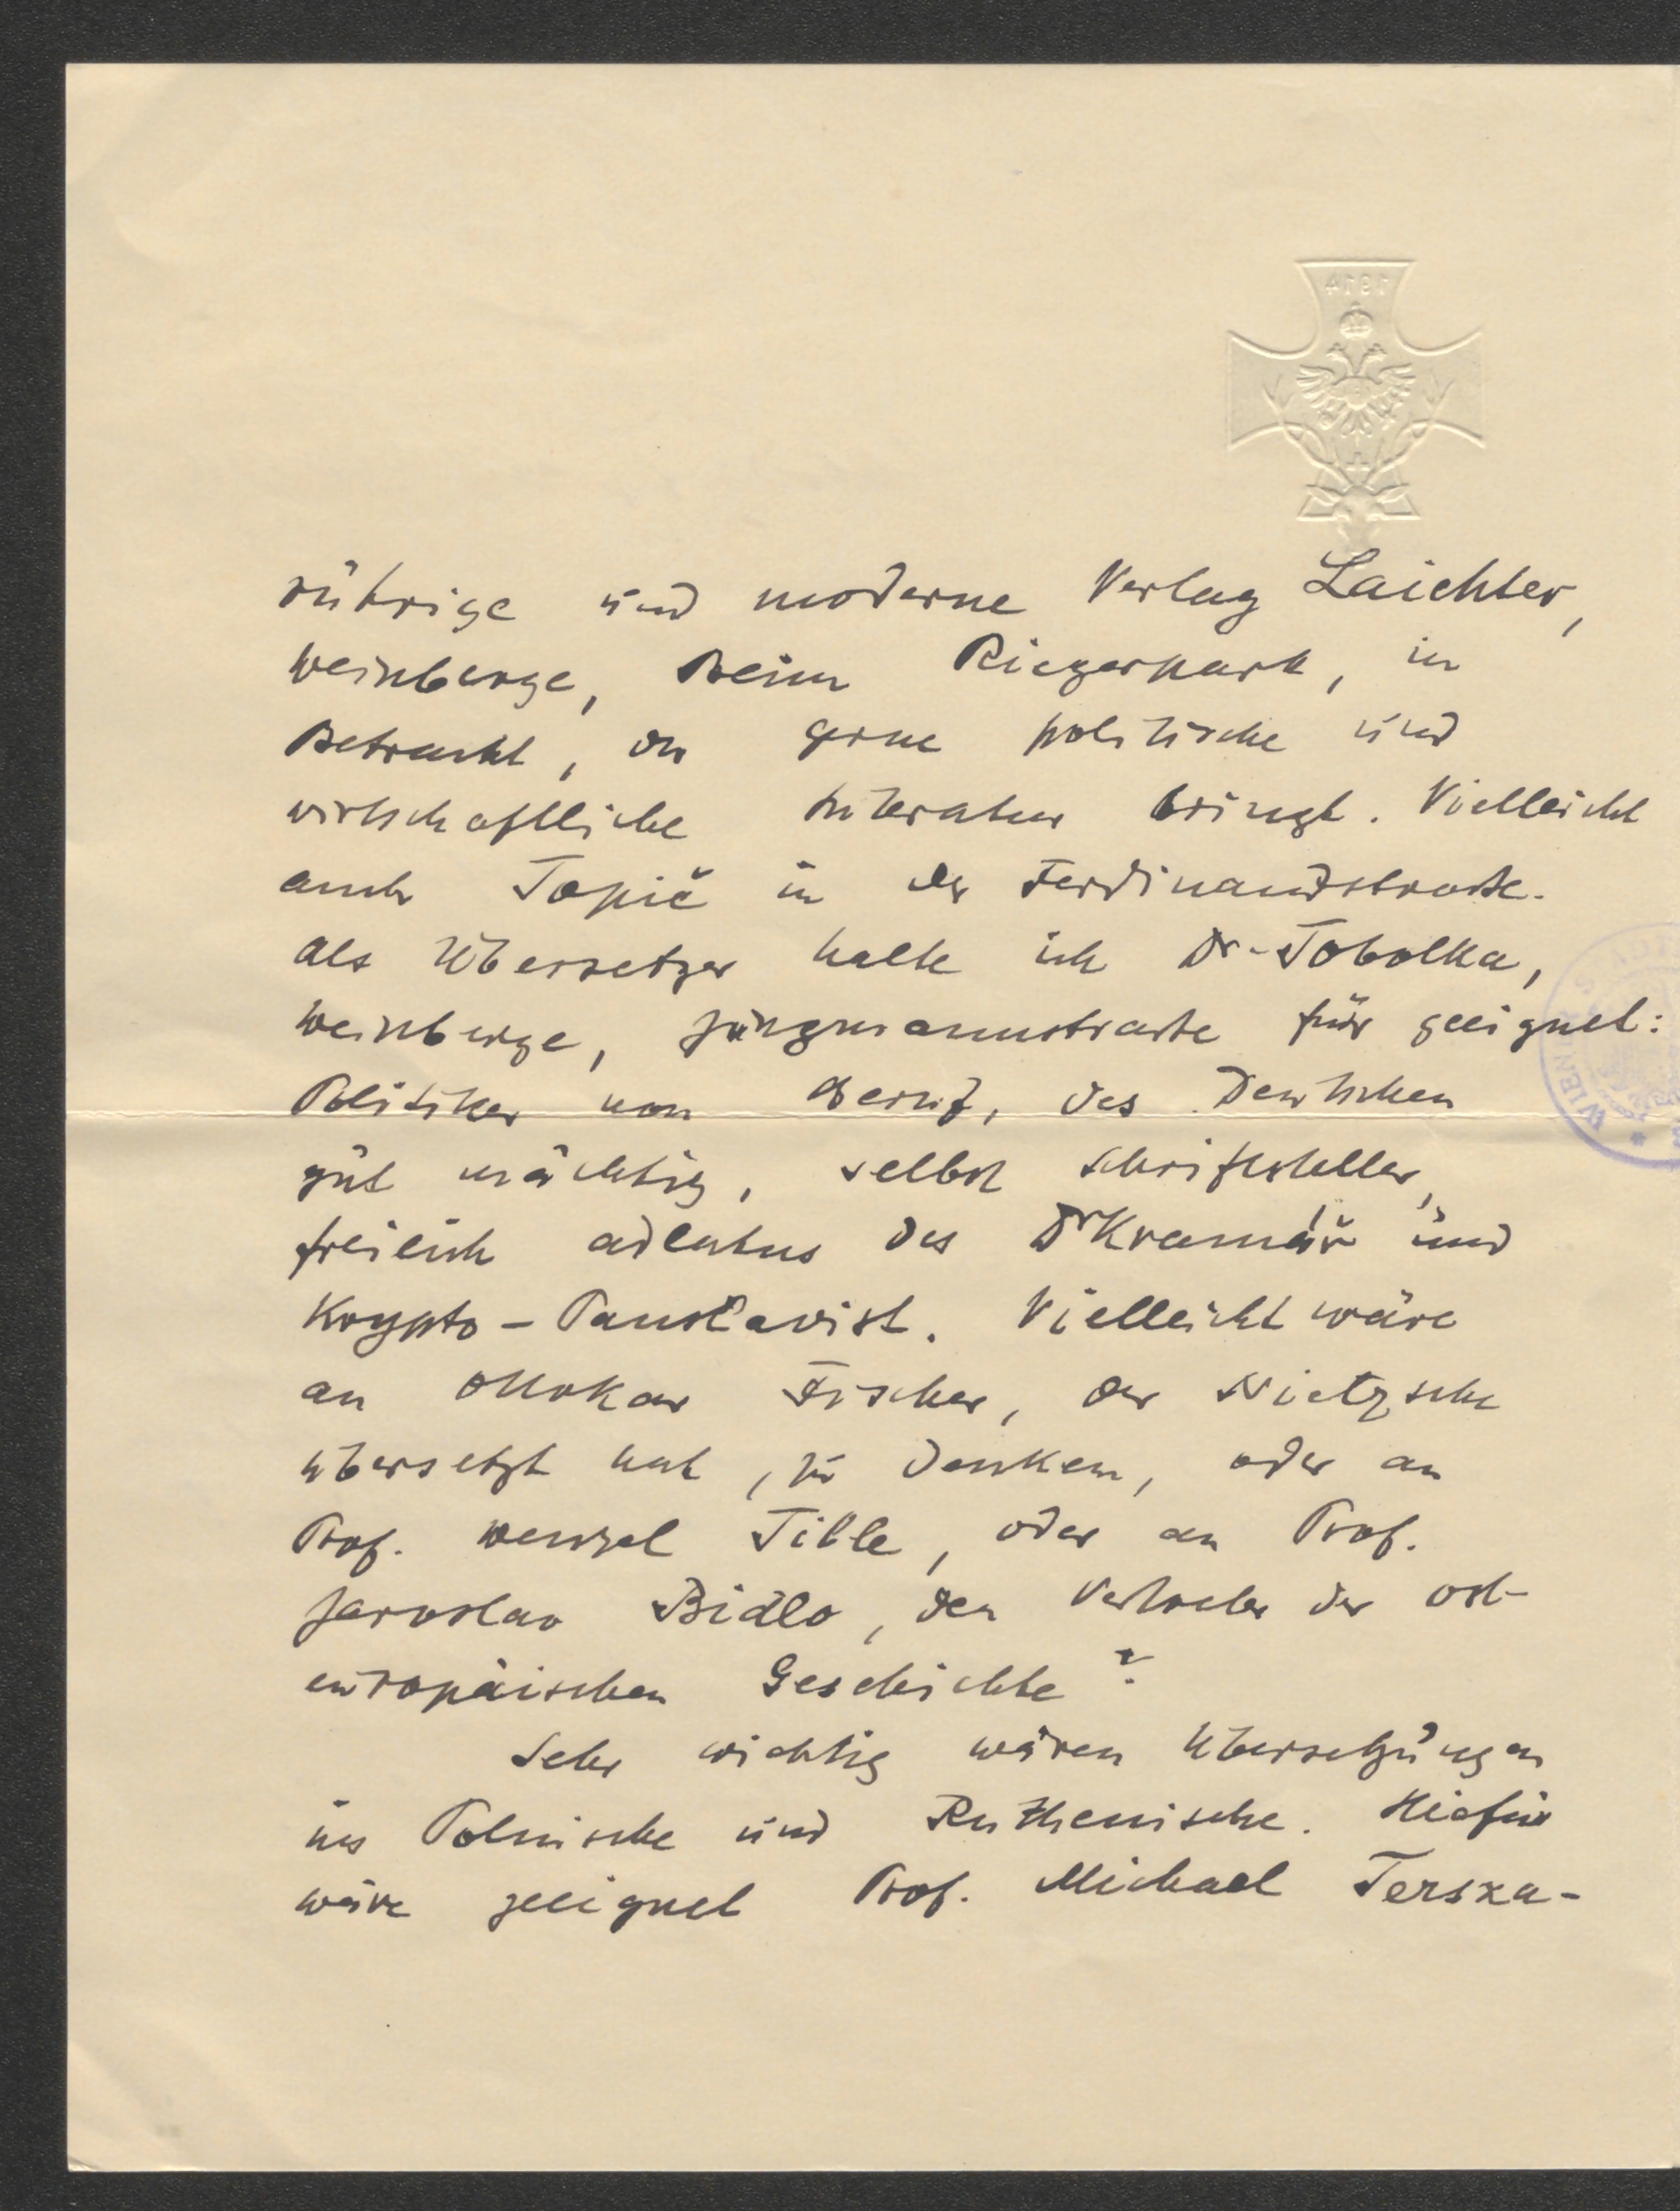 1914
rührige und moderne Verlag Laichter,
Weinberge, Beim Riegerpark, in
Betracht, der gerne politische und
wirtschaftliche Literatur bringt. Vielleicht
auch Topič in der Ferdinandstraße.
Als Übersetzer halte ich Dr. Tobolka,
Weinberge, Jungmannstraße für geeignet:
Politiker von Beruf, des Deutschen
gut mächtig, selbst Schriftsteller,
freilich adlatus des Dr Kramář und
Krypto-Panslavist. Vielleicht wäre
an Ottokar Fischer, der Nietzsche
übersetzt hat, zu denken, oder an
Prof. Wenzel Tille, oder an Prof.
Jaroslav Bidlo, den Vertreter der ost-
europäischen Geschichte?
Sehr wichtig wären Übersetzungen
ins Polnische und Ruthenische. Hiefür
wäre geeignet Prof. Michael Tersza-
WIENER STADT